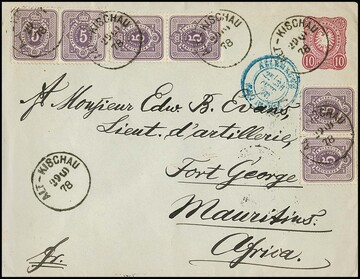 5 5 5 5
ALT-KISCHAU
78
ALT-KISCHAU
78
10 10
5
5
A Monsieur Edw. B. Evans,
Lieut. d'artillerie,
Fort George
Mauritius.
Africa.
ALT-KISCHAU
78
Fr.